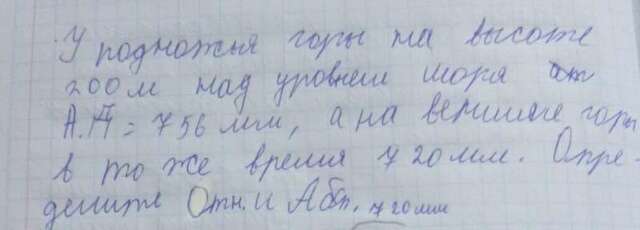 У подножья горы на высоте
200 м над уровнем моря ат
А.Д = 756 мм, а на вершине горы
в то же время 720 мм. Опре-
делите Отн. и Абс. 720 мм